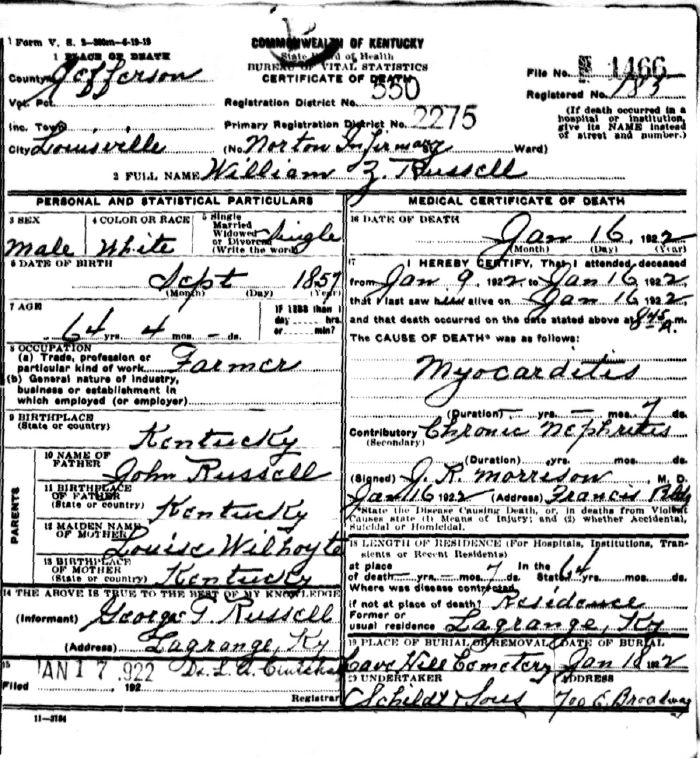 1 Form V. S. 2-300m-6-19-19
COMMONWEALTH OF KENTUCKY
State Board of Health
BUREAU OF VITAL STATISTICS
CERTIFICATE OF DEATH
1 PLACE OF DEATH
County Jefferson
Vot. Pct.
Inc. Town
City Louisville
File No. 1466
Registered No. 183
(If death occurred in a hospital or institution, give its NAME instead of street and number.)
Registration District No. 550
Primary Registration District No. 2275
(No. Norton Infirmary St. Ward)
2 FULL NAME William Z. Russell
PERSONAL AND STATISTICAL PARTICULARS
3 SEX
Male
4 COLOR OR RACE
White
5 Single
Married
Widowed
or Divorced
(Write the word)
Single
6 DATE OF BIRTH
Sept 1857
(Month) (Day) (Year)
7 AGE
64 yrs. 4 mos. – ds.
IF LESS than 1
day hrs.
or min?
8 OCCUPATION
(a) Trade, profession or
particular kind of work Farmer
(b) General nature of industry,
business or establishment in
which employed (or employer)
9 BIRTHPLACE
(State or country)
Kentucky
PARENTS
10 NAME OF
FATHER John Russell
11 BIRTHPLACE
OF FATHER
(State or country) Kentucky
12 MAIDEN NAME
OF MOTHER Louise Wilhoyte
13 BIRTHPLACE
OF MOTHER
(State or country) Kentucky
14 THE ABOVE IS TRUE TO THE BEST OF MY KNOWLEDGE
(Informant) George T. Russell
(Address) Lagrange, Ky
15
Filed JAN 17 1922 192
Registrar
MEDICAL CERTIFICATE OF DEATH
16 DATE OF DEATH
Jan 16, 1922
(Month) (Day) (Year)
17 I HEREBY CERTIFY, That I attended deceased
from Jan 9, 1922 to Jan 16 1922
that I last saw alive on Jan 16 1922
and that death occurred on the date stated above at 845 A. m.
The CAUSE OF DEATH* was as follows:
Myocarditis
(Duration) – yrs. – mos. 7 ds.
Contributory Chronic Nephritis
(Secondary)
(Duration) yrs. mos. ds.
(Signed) J. R. Morrison, M. D.
Jan 16 1922 (Address) Francis Bldg
*State the Disease Causing Death, or, in deaths from Violent
Causes state (1) Means of Injury; and (2) whether Accidental,
Suicidal or Homicidal.
18 LENGTH OF RESIDENCE (For Hospitals, Institutions, Tran-
sients or Recent Residents)
at place
of death yrs. – mos. 7 In the State 64 yrs. mos. ds.
Where was disease contracted,
if not at place of death? Residence
Former or
usual residence Lagrange, Ky
19 PLACE OF BURIAL OR REMOVAL DATE OF BURIAL
Cave Hill Cemetery Jan 18 1922
20 UNDERTAKER ADDRESS
Schildt & Sons 700 E. Broadway
11-3184